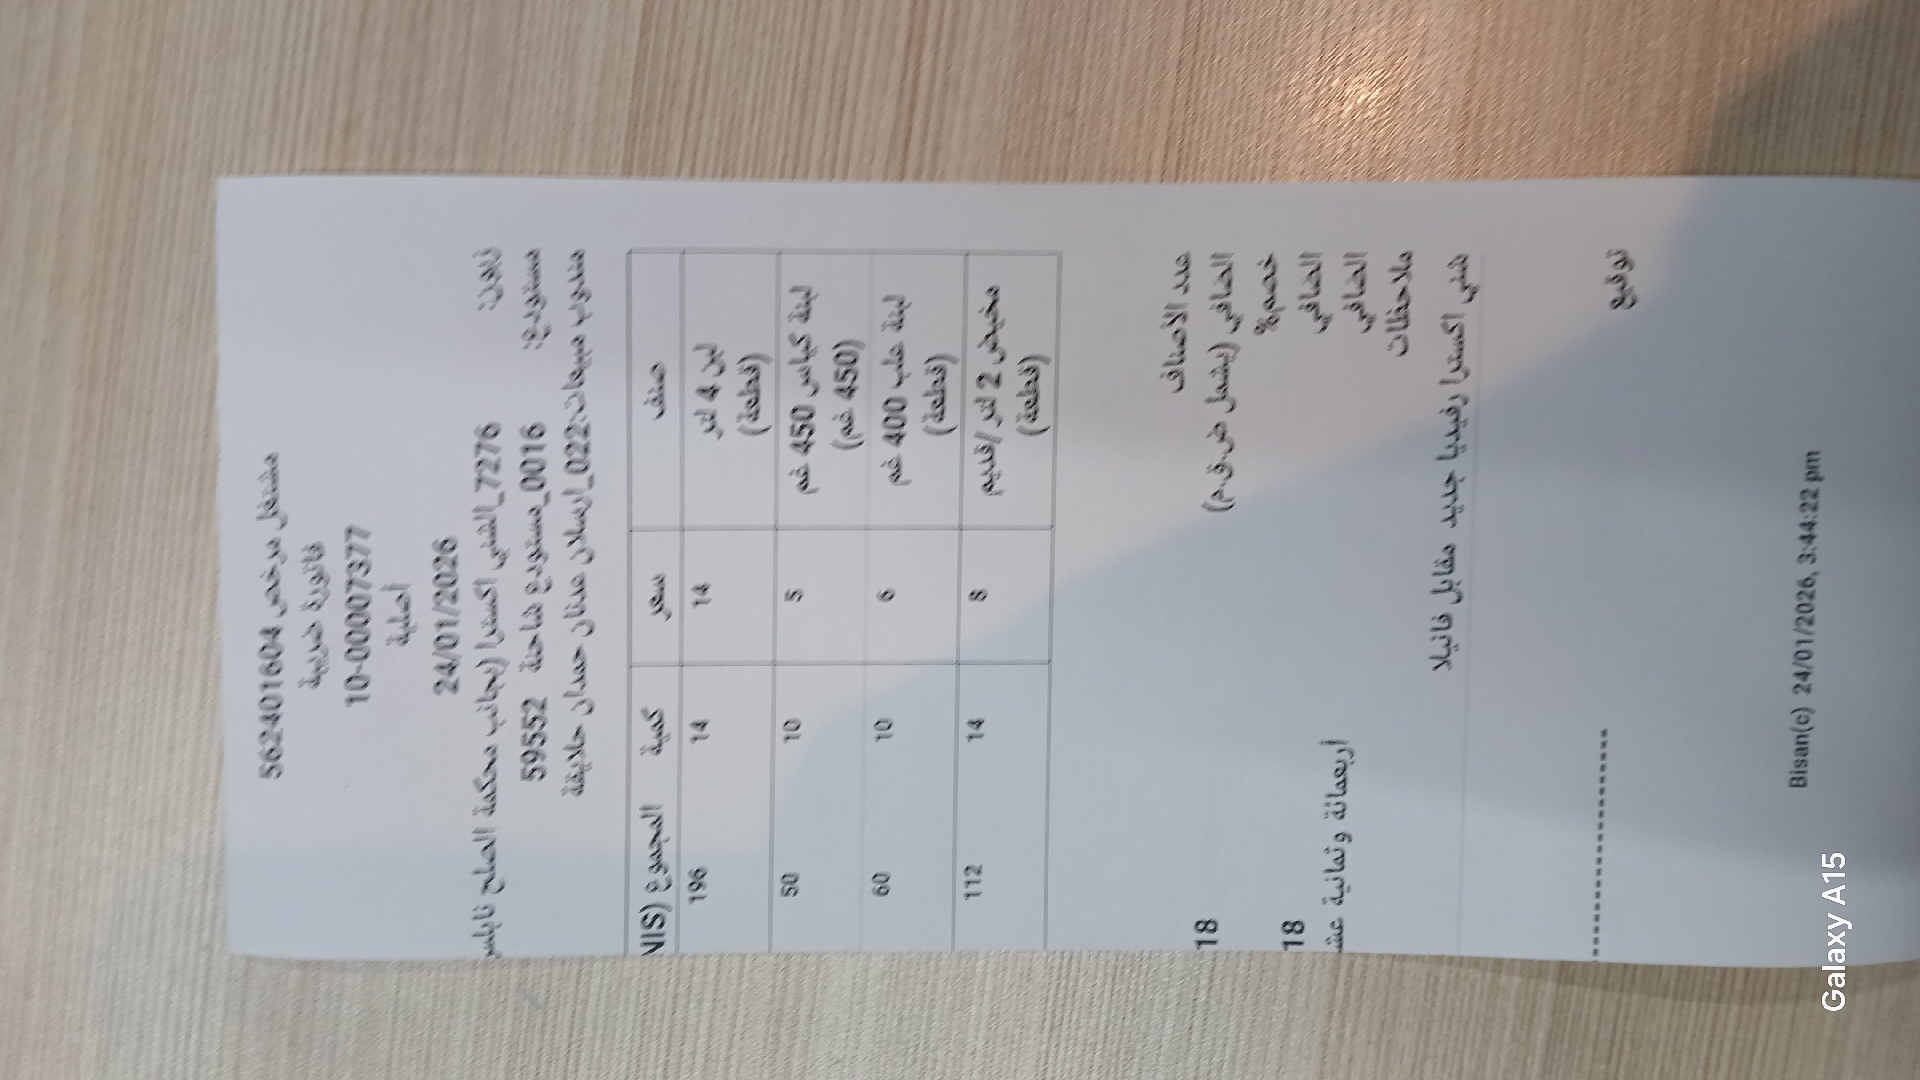 مشتغل مرخص 562401604
فاتورة ضريبية
10-00007377
أصلية
24/01/2026
زبون: 7276_الشني اكسترا (بجانب محكمة الصلح نابلس
مستودع: 0016_مستودع شاحنة 59552
مندوب مبيعات:022_ارسلان عدنان حمدان حلايقة
صنف سعر كمية المجموع (NIS
لبن 4 لتر (قطعة) 14 14 196
لبنة كياس 450 غم (450 غم) 5 10 50
لبنة علب 400 غم (قطعة) 6 10 60
مخيض 2 لتر /قديم (قطعة) 8 14 112
عدد الأصناف
الصافي (يشمل ض.ق.م) 18
خصم%
الصافي 18
الصافي أربعمائة وثمانية عش
ملاحظات
شني اكسترا رفيديا جديد مقابل فانيلا
توقيع
Bisan(c) 24/01/2026, 3:44:22 pm
Galaxy A15